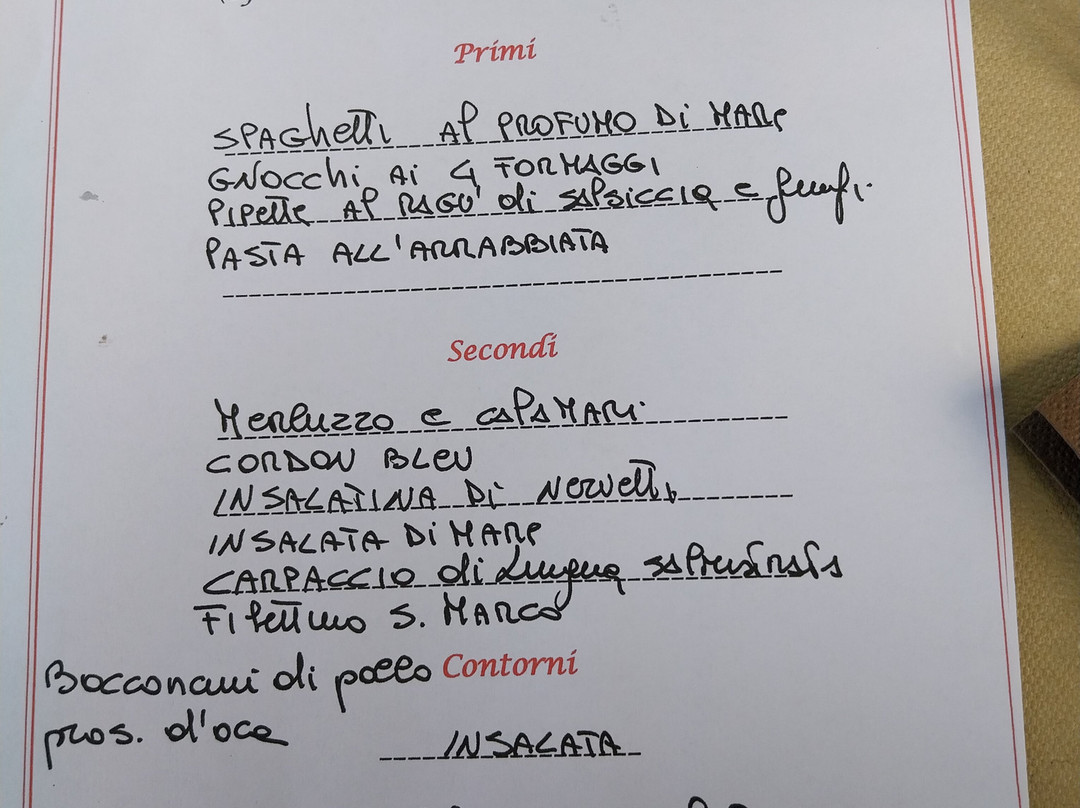 Primi
SPAGhETTi Al PROFUMO Di MARe
GNOCChi Ai 4 FORMAGGI
PIPETTE Al RAGU' di SALSICCIA e funghi
PASTA ALL'ARRABBIATA
Secondi
Merluzzo e CALAMARi
CORDON BLEU
INSALATINA Di Nervetti
INSALATA Di MARe
CARPACCIO di Lingua salmistrata
Filettino S. MARCO
Bocconcini di pollo
Contorni
pros. d'oca
INSALATA